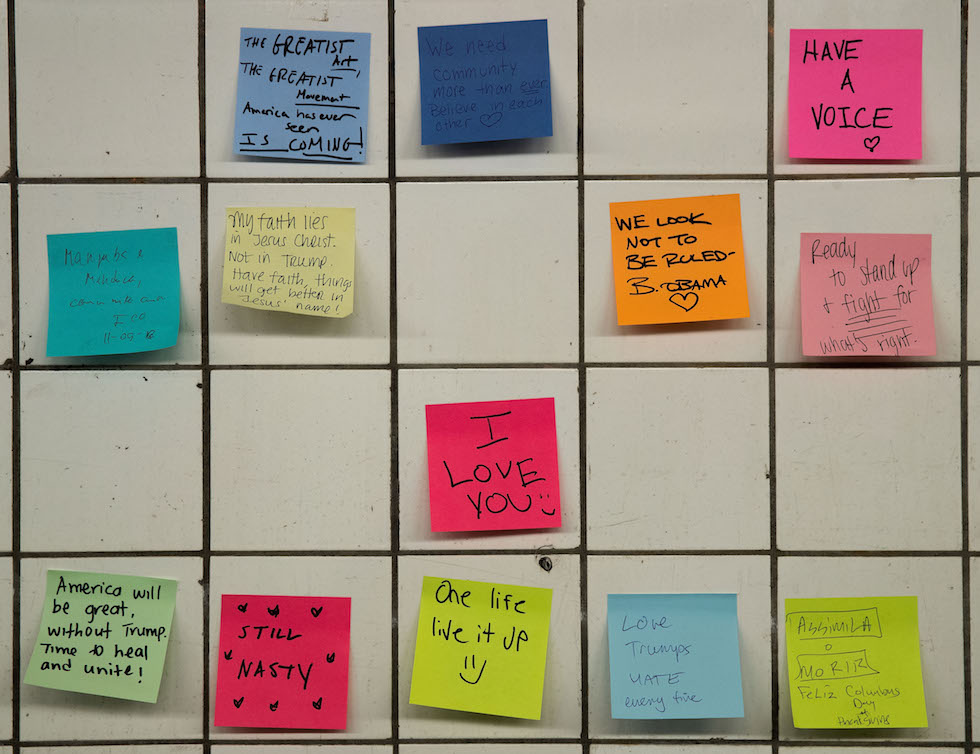 THE GREATIST
Art,
THE GREATIST
Movement
America has ever
seen
IS COMING!
We need
community
more than ever
Believe in each
other
HAVE
A
VOICE
My faith lies
in Jesus Christ.
Not in Trump.
Have faith, things
will get better in
Jesus' name!
WE LOOK
NOT TO
BE RULED-
B. OBAMA
Ready
to stand up
+ fight for
what's right.
I
LOVE
YOU
America will
be great,
without Trump.
Time to heal
and unite!
STILL
NASTY
One life
live it up
Love
Trumps
HATE
every time
ASSIMILA
O
MORIR
FELIZ Columbus
Day